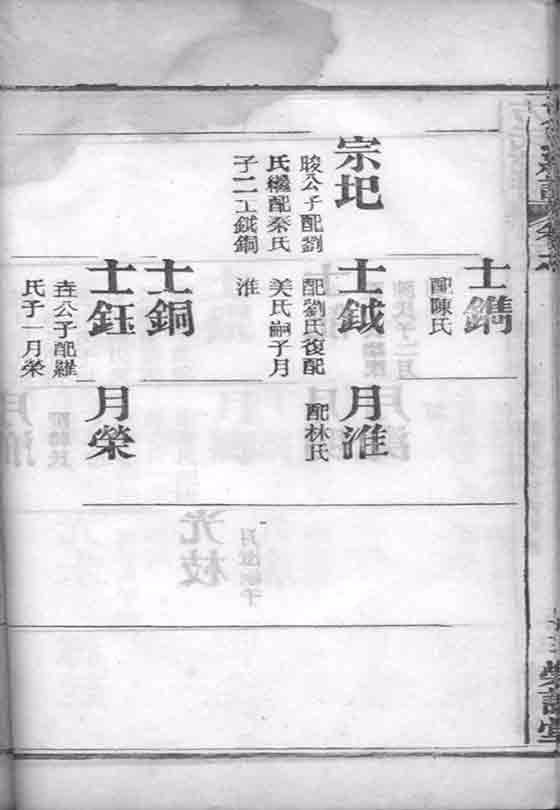 宗圯
駿公子配劉
氏繼配秦氏
子二士鉞銅
士鐫
配陳氏
士鉞
配劉氏復配
美氏嗣子月
淮
士銅
士鈺
公子配羅
氏子一月榮
月淮
配林氏
月榮